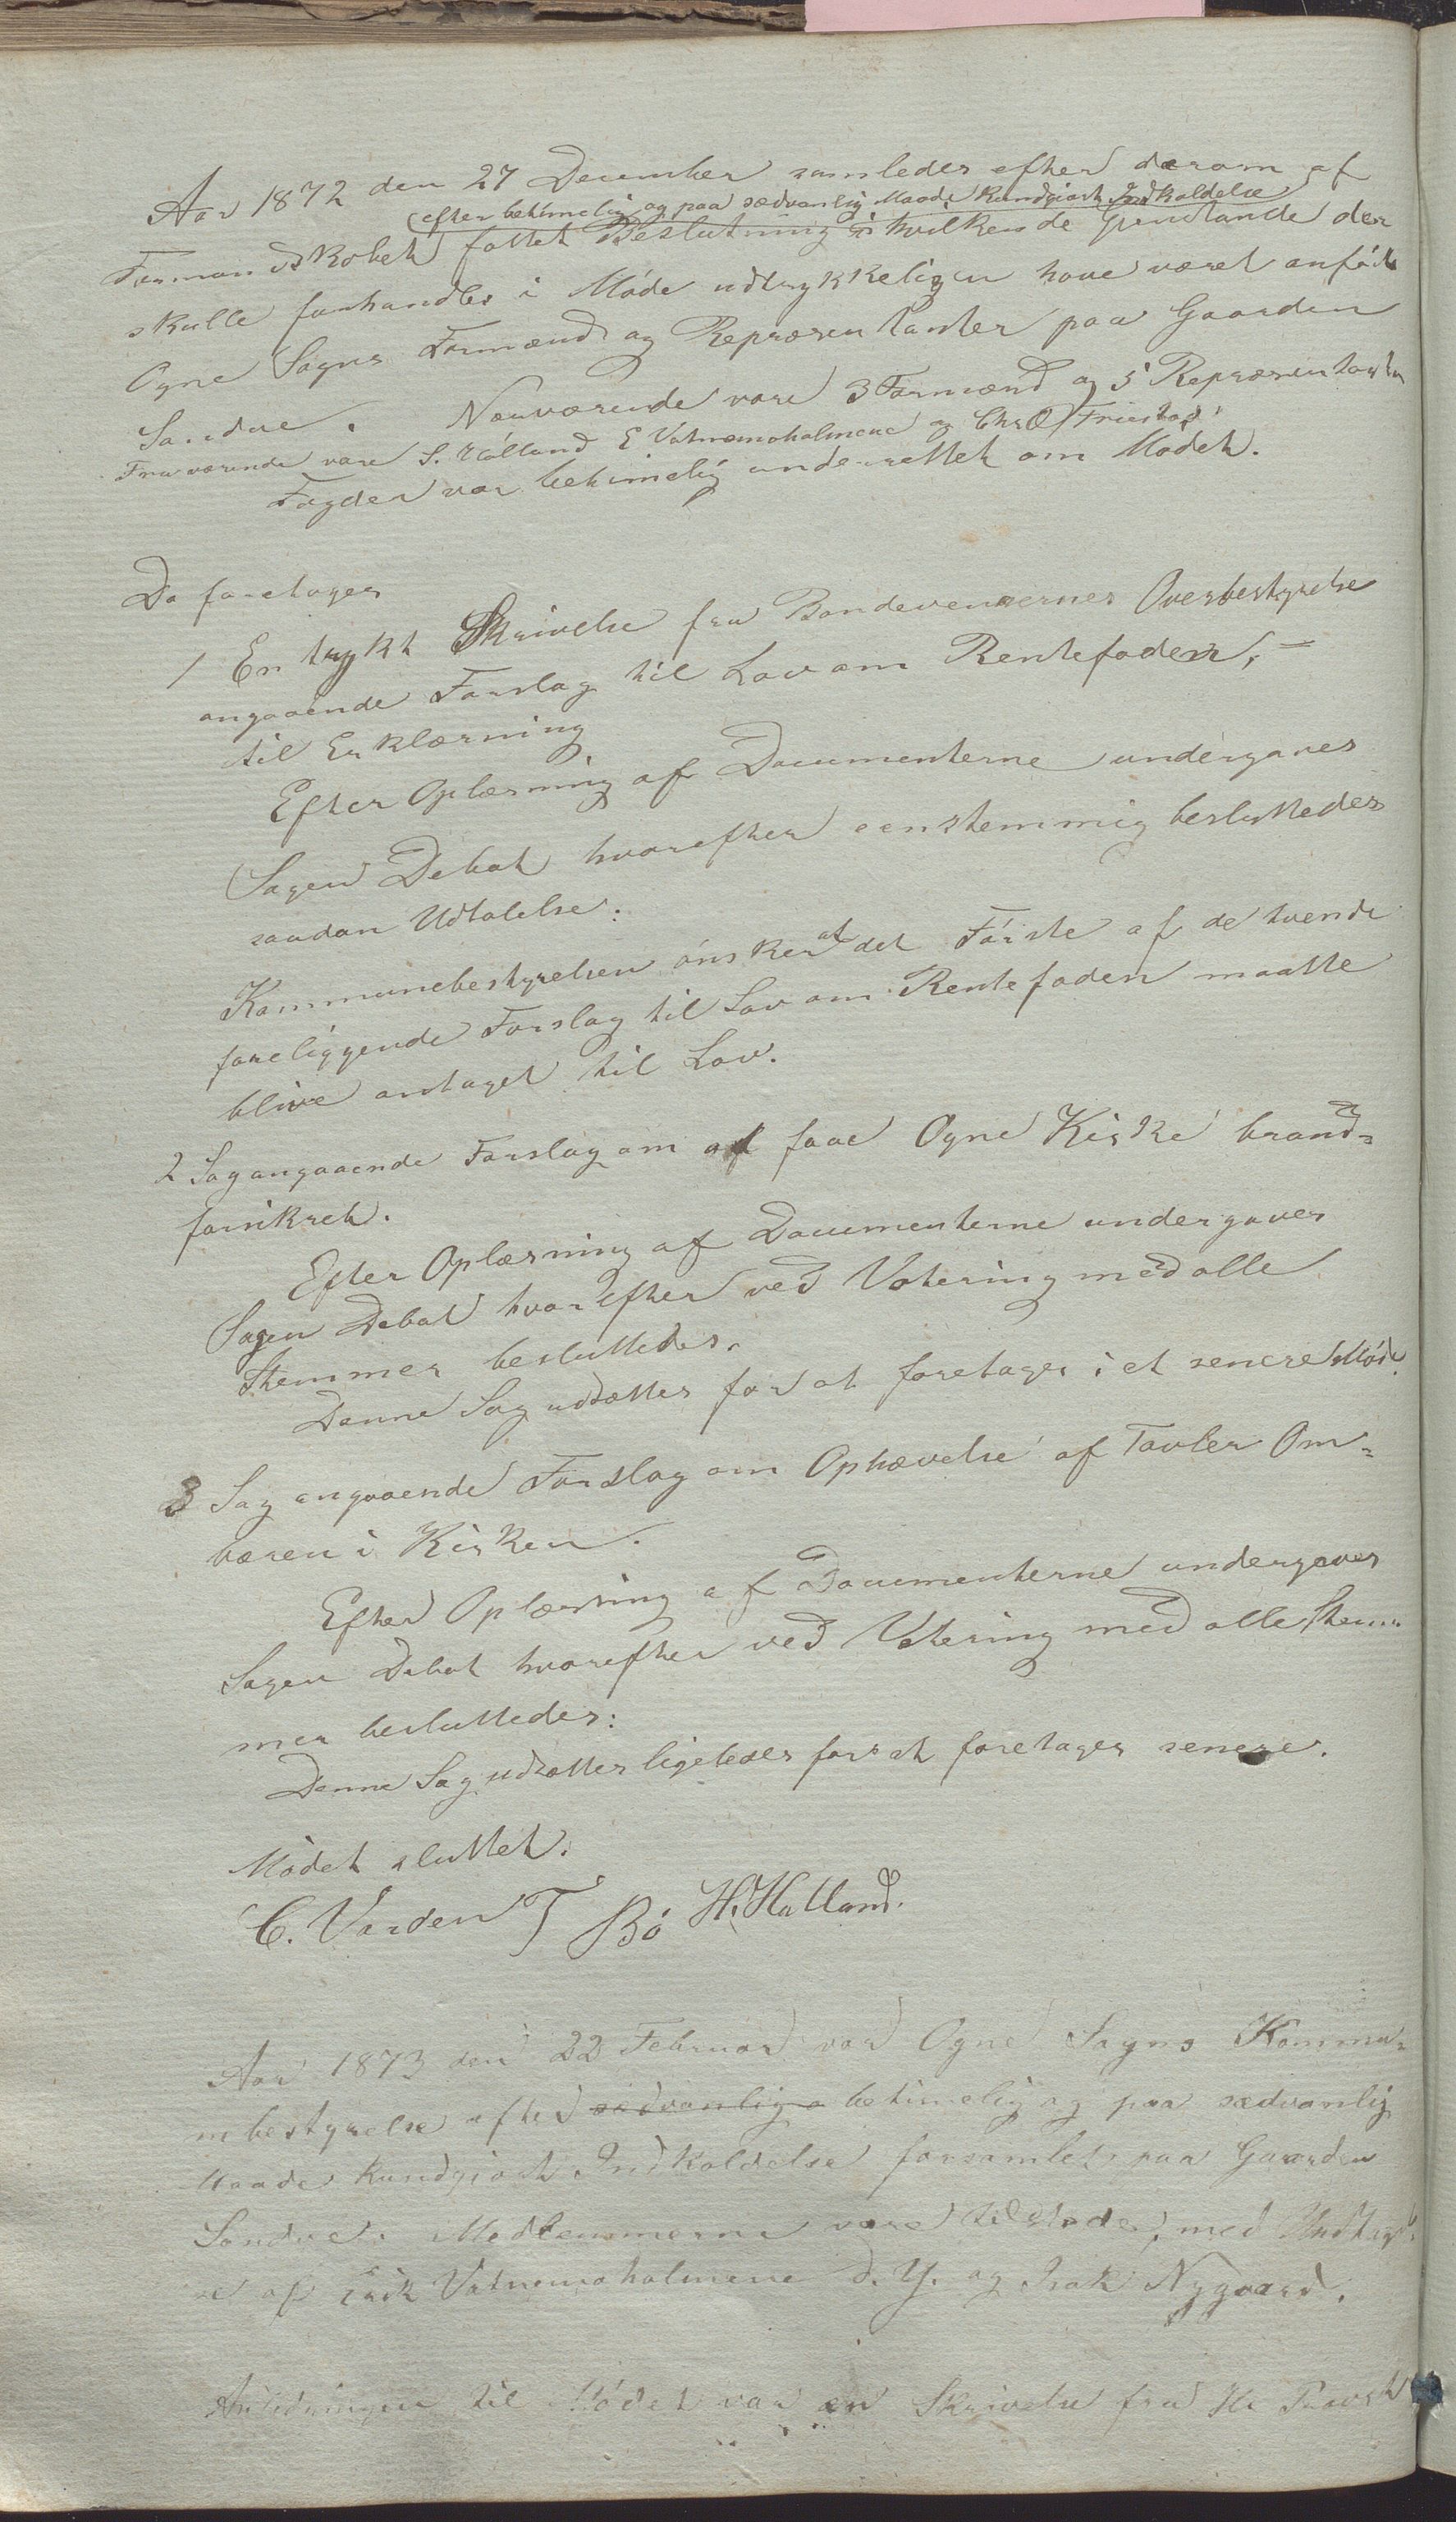 Aar 1872 den 27 December samledes efter derom af
efter betimelig og paa sædvanlig Maade kundgjort Indkaldelse
Formandskabet fattet Beslutning i hvilken de Gjenstande der
skulle forhandles i Møde udtrykkeligen have været anført
Ogne Sogns Formænd og Repræsentanter paa Gaarden
Sandve. Nærværende vare 3 Formænd og 5 Repræsentanter
Fraværende vare S. Hålland E Vatnemoholmene og Chr O Friestad
Fogden var betimelig underrettet om Mødet.
Da foretoges
1 En trykt Skrivelse fra Bondevennernes Overbestyrelse
angaaende Forslag til Lov om Rentefoden, –
til Erklærning
Efter Oplæsning af Documenterne undergaves
Sagen Debat hvorefter eenstemmig besluttedes
saadan Udtalelse:
Kommunebestyrelsen ønsker at det Første af de tvende
foreliggende Forslag til Lov om Rentefoden maatte
blive antaget til Lov.
2 Sag angaaende Forslag om at faae Ogne Kirke brand=
forsikret.
Efter Oplæsning af Documenterne undergaves
Sagen Debat hvorefter ved Votering med alle
Stemmer besluttedes.
Denne Sag udsættes for at foretages i et senere Møde.
3 Sag angaaende Forslag om Ophævelse af Tavler Om=
bæren i Kirken.
Efter Oplæsning af Documenterne undergaves
Sagen Debat hvorefter ved Votering med alle Stem=
mer besluttedes:
Denne Sag udsættes ligeledes for at foretages senere.
Mødet sluttet.
C. Varden T Bø H. Hatland.
Aar 1873 den 22 Februar var Ogne Sogns Kommu=
nebestyrelse efter sædvanlig betimelig og paa sædvanlig
Maade kundgjort Indkaldelse forsamlet paa Gaarden
Sandve. Medlemmerne vare tilstede, med Undtagel=
se af Erik Vatnemoholmene d. Y. og Isak Nygaard.
Anledningen til Mødet var en Skrivelse fra Hr Provst